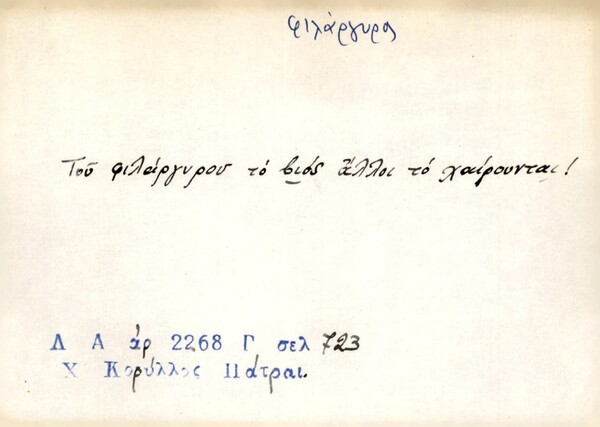 φιλάργυρος
Τοῦ φιλάργυρου τό βιός ἄλλοι τό χαίρουνται!
Λ Α ἀρ 2268 Γ σελ 723
Χ Κορύλλος Πάτραι.